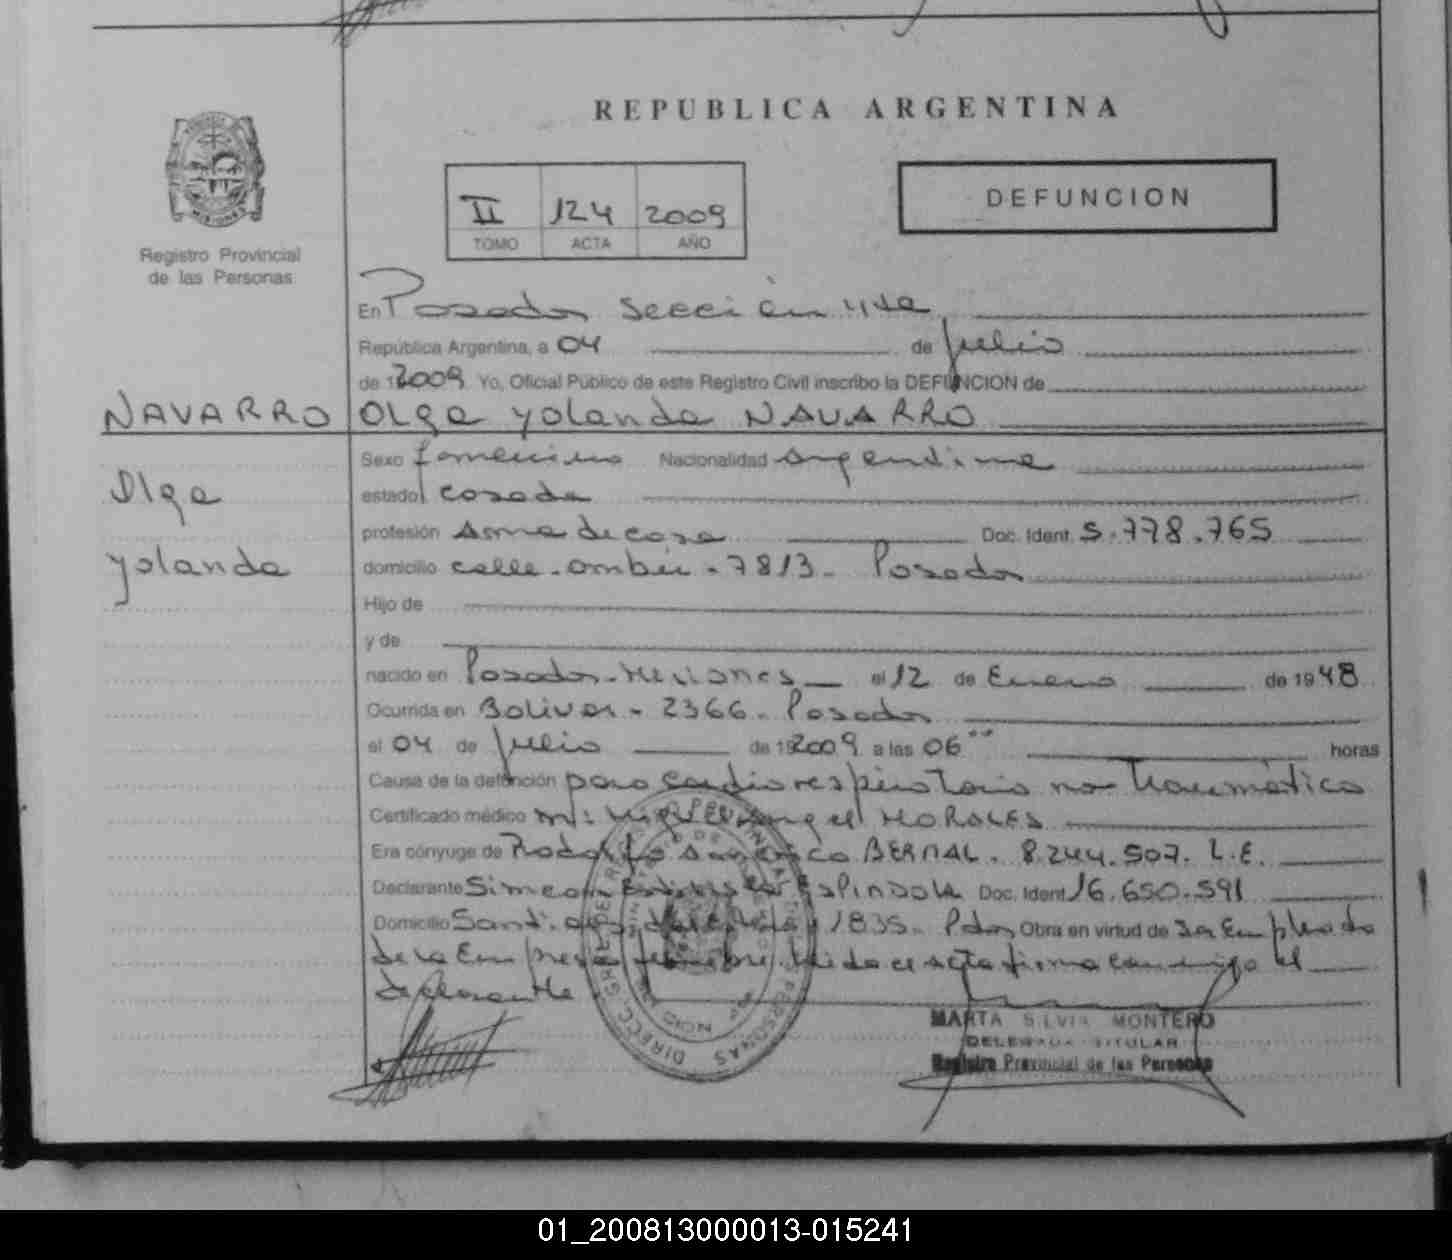 REPUBLICA ARGENTINA
II 124 2009
TOMO ACTA AÑO
DEFUNCION
Registro Provincial
de las Personas
En Posadas sección 4ta
República Argentina, a 04 de julio
de 2009 Yo, Oficial Público de este Registro Civil inscribo la DEFUNCION de
NAVARRO Olga Yolanda NAVARRO
Sexo femenino Nacionalidad argentina
Olga
estado casada
profesión ama de casa Doc. Ident. 5.778.765
Yolanda
domicilio calle ambú - 7813 - Posadas
Hijo de
y de
nacido en Posadas - Misiones el 12 de Enero de 1948
Ocurrida en Bolivar - 2366 - Posadas
el 04 de julio de 2009 a las 06 horas
Causa de la defunción paro cardiorespiratorio no traumático
Certificado médico Miguel Angel MORALES
Era cónyuge de Rodolfo BERNAL. 8.244.507. L.E.
Declarante Simeon ESPINDOLA Doc. Ident 16.650.591
Domicilio 1835 - Pdas Obra en virtud de Empleado
de la Empresa fúnebre. Leida el acta firma conmigo el
declarante
MARTA SILVIA MONTERO
DELEGADA TITULAR
Registro Provincial de las Personas
01_200813000013-015241